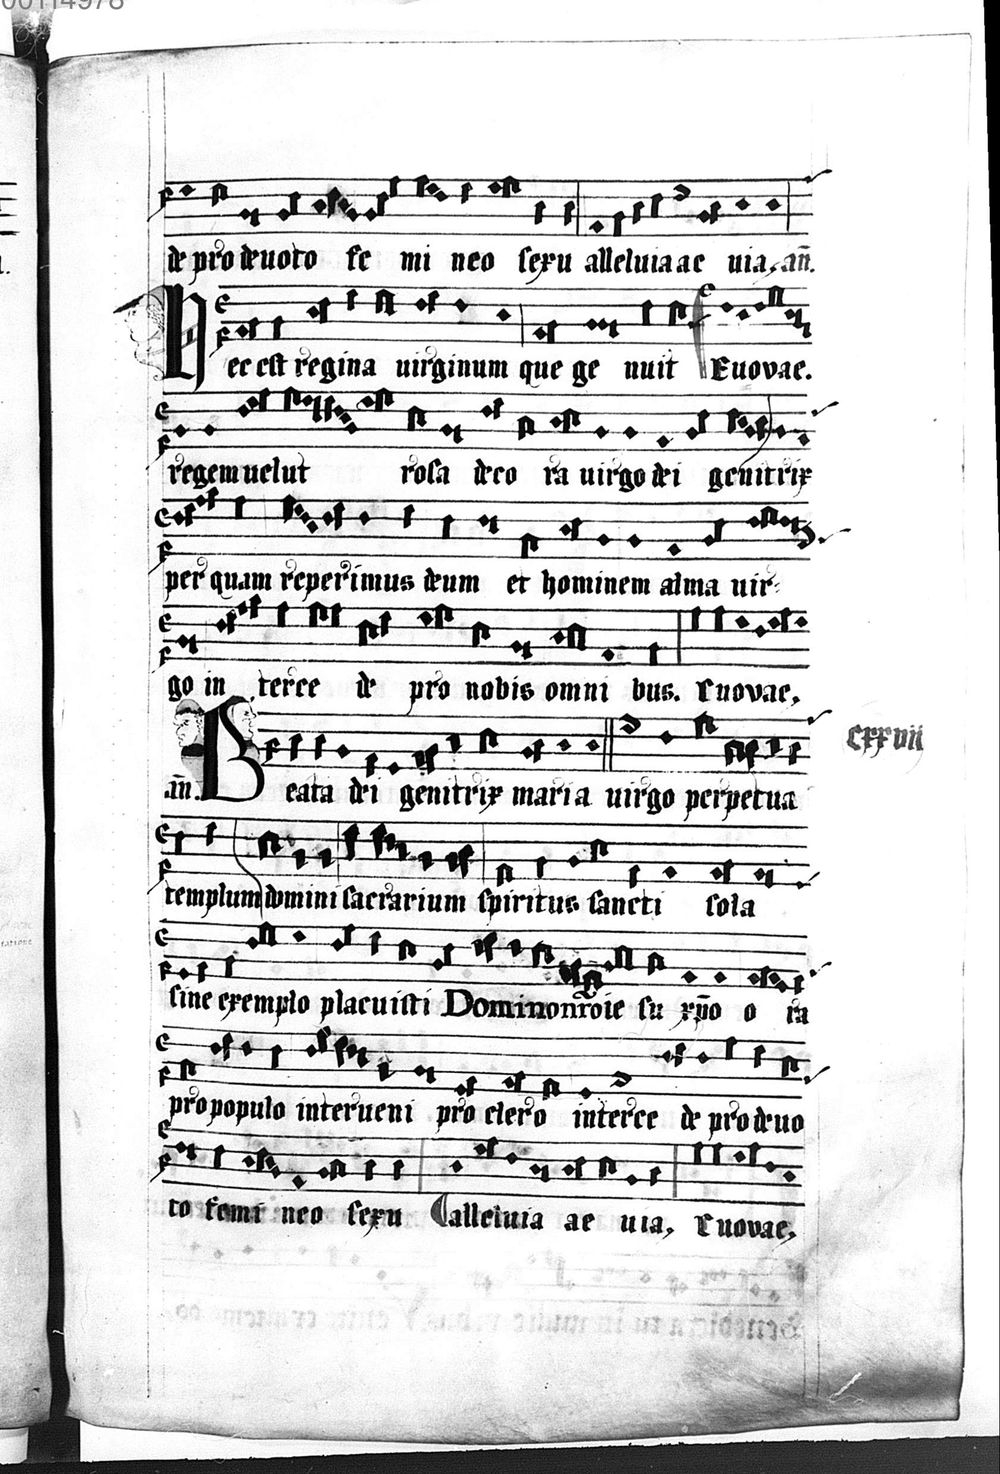 00114978
de pro deuoto fe mi neo sexu alleluia ae uia, an̄.
Hec est regina uirginum que ge nuit Euovae.
regem uelut rosa deco ra uirgo dei genitrix
per quam reperimus deum et hominem alma uir-
go in terce de pro nobis omni bus. Euovae.
an̄. Beata dei genitrix maria uirgo perpetua
cxxvii
templum domini sacrarium spiritus sancti sola
sine exemplo placuisti Domino nr̄o ie su xp̄o o ra
pro populo interueni pro clero interce de pro deuo
to femi neo sexu alleluia ae uia, Euovae.